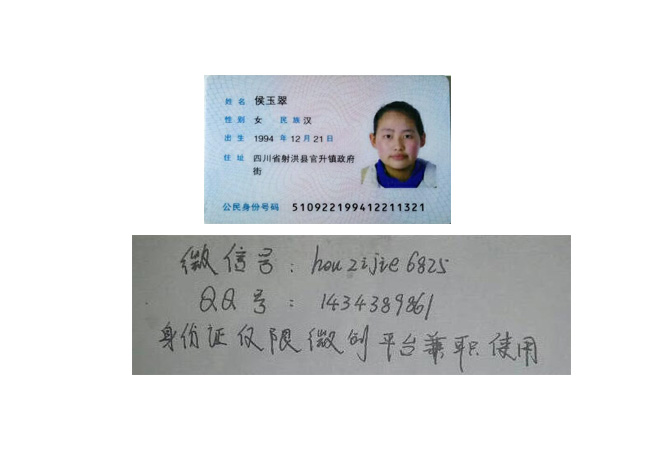 姓名 侯玉翠
性别 女 民族 汉
出生 1994 年 12 月 21 日
住址 四川省射洪县官升镇政府
街
公民身份号码 510922199412211321
微信号：houzijie6825
QQ号：1434389861
身份证仅限微创平台兼职使用